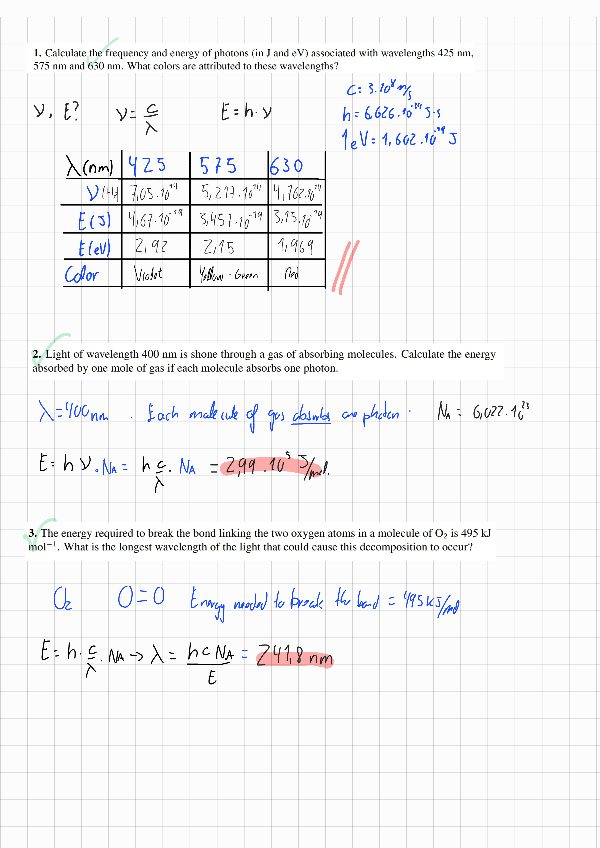 1. Calculate the frequency and energy of photons (in J and eV) associated with wavelengths 425 nm,
575 nm and 630 nm. What colors are attributed to these wavelengths?
C = 3.10⁸ m/s
ν, E? ν = c/λ E = h·ν
h = 6,626.10⁻³⁴ J·s
1eV = 1,602.10⁻¹⁹ J
λ(nm) 425 575 630
ν(Hz) 7,05.10¹⁴ 5,217.10¹⁴ 4,762.10¹⁴
E(J) 4,67.10⁻¹⁹ 3,457.10⁻¹⁹ 3,15.10⁻¹⁹
E(eV) 2,92 2,15 1,969
Color Violet Yellow - Green Red
2. Light of wavelength 400 nm is shone through a gas of absorbing molecules. Calculate the energy
absorbed by one mole of gas if each molecule absorbs one photon.
λ = 400nm . Each molecule of gas absorbs one photon . NA = 6,022.10²³
E = h ν . NA = h c/λ . NA = 2,99 . 10⁵ J/mol.
3. The energy required to break the bond linking the two oxygen atoms in a molecule of O₂ is 495 kJ
mol⁻¹. What is the longest wavelength of the light that could cause this decomposition to occur?
O₂ O=O Energy needed to break the bond = 495 kJ/mol
E = h · c/λ . NA → λ = h c NA / E = 241,8 nm